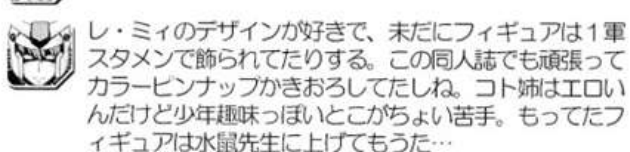 レ・ミィのデザインが好きで、未だにフィギュアは１軍
スタメンで飾られてたりする。この同人誌でも頑張って
カラーピンナップかきおろしてたしね。コト姉はエロい
んだけど少年趣味っぽいとこがちょい苦手。もってたフ
ィギュアは水鼠先生に上げてもうた…